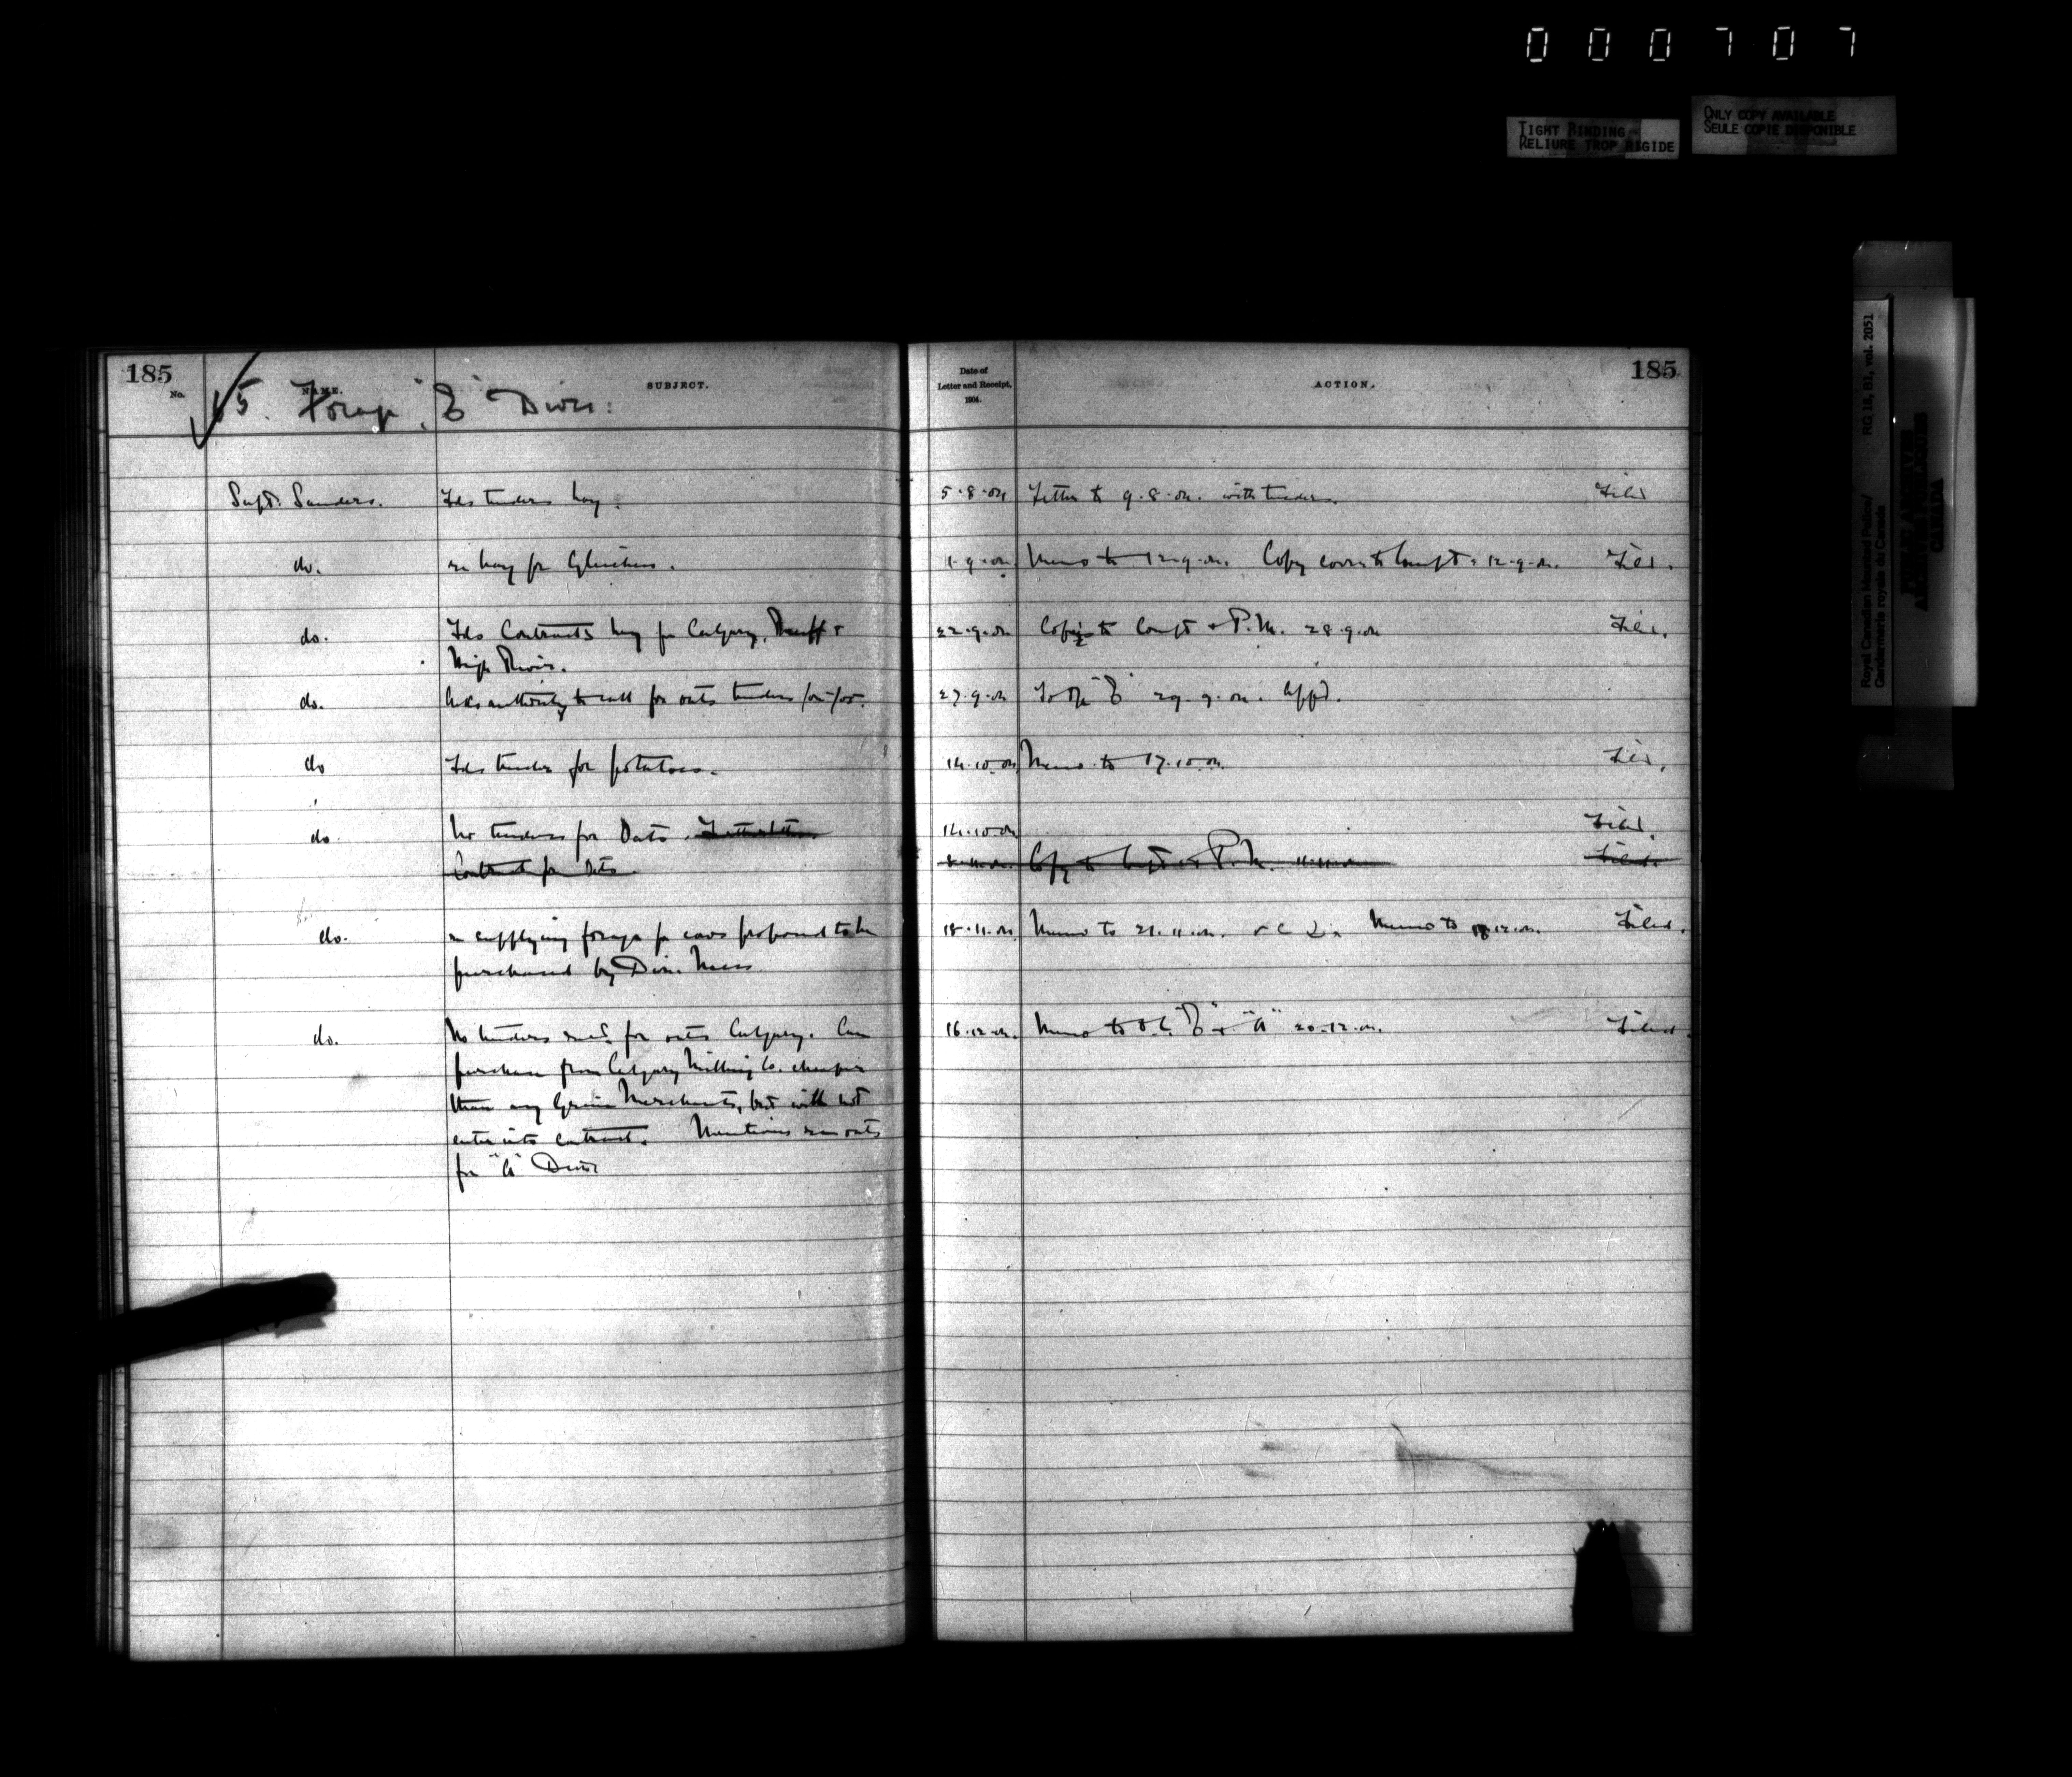 000707
TIGHT BINDING
RELIURE TROP RIGIDE
ONLY COPY AVAILABLE
SEULE COPIE DISPONIBLE
Royal Canadian Mounted Police/
Gendarmerie royale du Canada
RG 18, B1, vol. 2051
PUBLIC ARCHIVES
ARCHIVES PUBLIQUES
CANADA
185
No.
NAME.
SUBJECT.
Date of
Letter and Receipt,
1904.
ACTION.
185
5. Forage "E" Divn:
Supt. Sanders. Fds tenders hay. 5.8.04 Letter to 9.8.04. with tenders. Filed
do. re hay for Gleichen. 1.9.04 Memo to 12.9.04. Copy corres to Compt. 12.9.04. Filed.
do. Fds Contracts hay for Calgary, Banff &
High River. 22.9.04 Copies to Compt & P.M. 28.9.04 Filed.
do. Asks authority to call for oats tenders /04-/05. 27.9.04 To "E" 29.9.04. Appd.
do Fds tender for potatoes. 14.10.04 Memo to 17.10.04 Filed.
do No tenders for Oats. 14.10.04 Filed.
Contract for Oats Copy to Compt & P.M. 11.11.04 Filed.
do. re supplying forage for cows proposed to be
purchased by Divn. Mess 18.11.04 Memo to 21.11.04. Memo to 12.04. Filed.
do. No tenders recd. for oats Calgary. Can
purchase from Calgary Milling Co. cheaper
than any Grain Merchants, but will not
enter into contract. Mentions re oats
for "A" Divn 16.12.04. Memo to O.C. "E" & "A" 20.12.04. Filed.